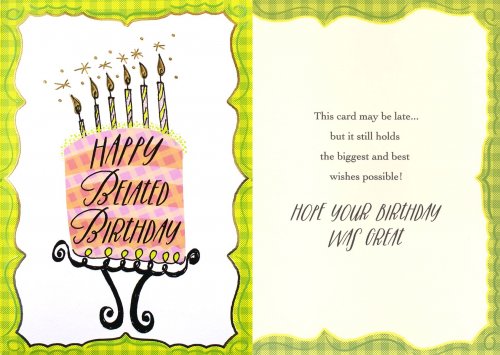 HAPPY
BELATED
BIRTHDAY
This card may be late...
but it still holds
the biggest and best
wishes possible!
HOPE YOUR BIRTHDAY
WAS GREAT